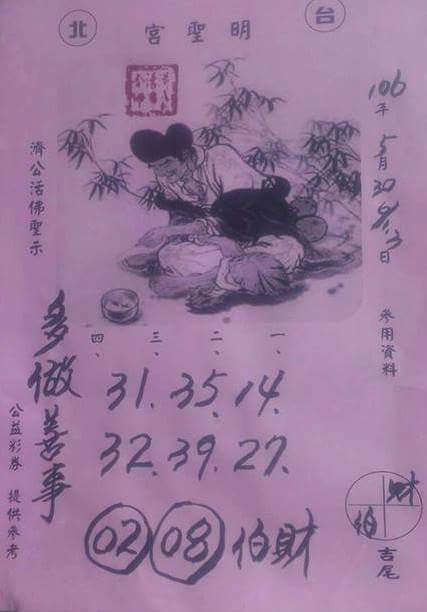 台 明聖宮 北
106年5月30 日
參用資料
濟公活佛聖示
一、二、三、四、
31、35、14、
32、39、27、
02 08 伯財
多做善事
公益彩券 提供參考
財
伯
吉尾